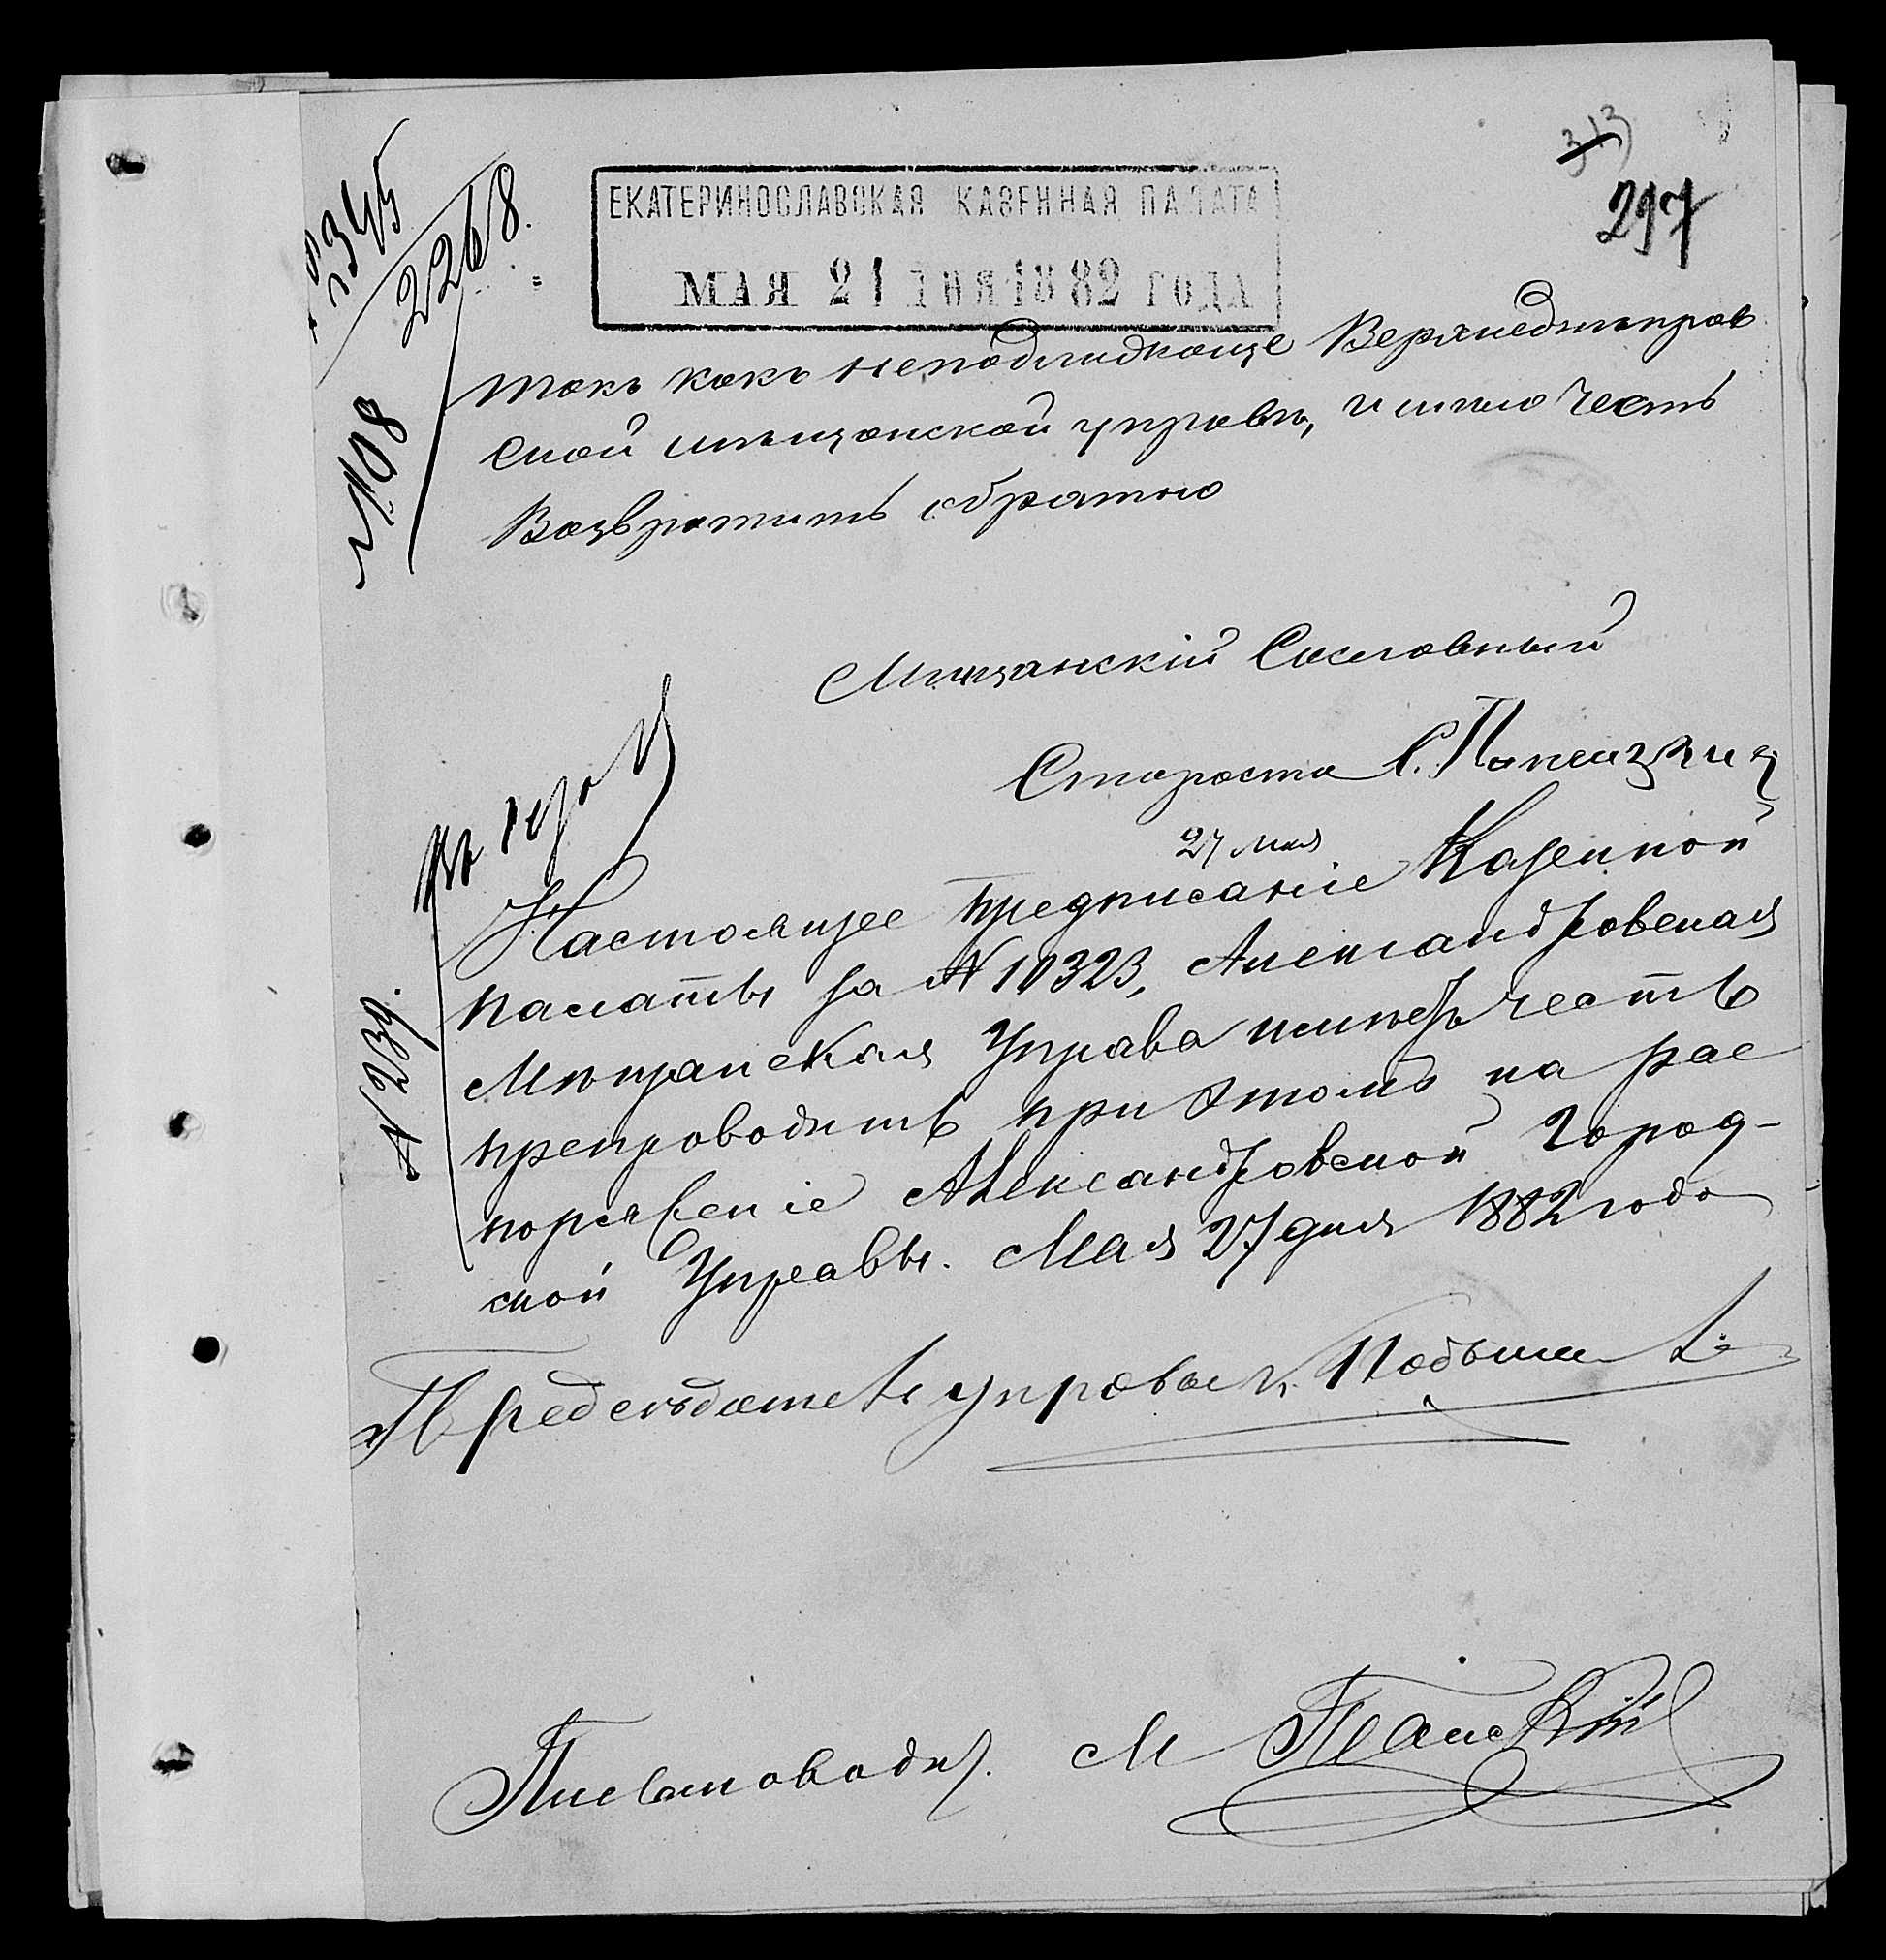 313
297
2345
2268.
№108
ЕКАТЕРИНОСЛАВСКАЯ КАЗЕННАЯ ПАЛАТА
МАЯ 21 ДНЯ 1882 ГОДА
такъ какъ неподлежаще Верхнеднѣпров
ской мѣщанской управѣ, имѣю честь
Возвратить обратно
Мѣщанскій Сословный
Староста С.
27 мая
Настоящее предписаніе Казенной
палаты за №10323, Александровская
№239.
Мѣщанская Управа имѣетъ честь
препроводить при этомъ на рас
поряженіе Александровской Город-
ской Управы. Мая 27 дня 1882 года
Председатель управы
Письмоводит. М